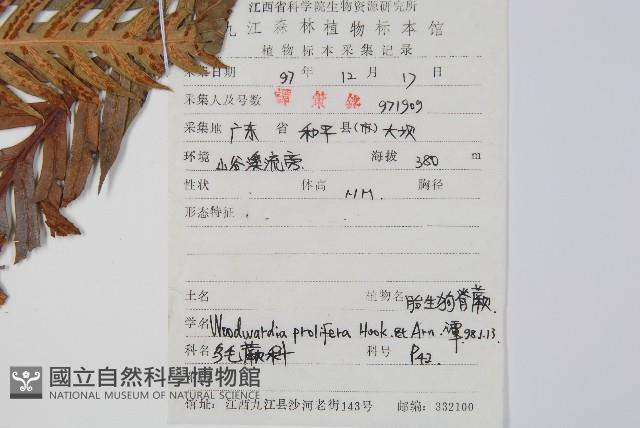 江西省科学院生物资源研究所
九江森林植物标本馆
植物标本采集记录
采集日期 97 年 12 月 17 日
采集人及号数 譚 策 銘 971909
采集地 广东 省 和平 县(市) 大坝
环境 山谷溪流旁. 海拔 380 m
性状 体高 1M. 胸径
形态特征
土名 植物名 胎生狗脊蕨.
学名 Woodwardia prolifera Hook. et Arn. 譚 98.1.13.
科名 乌毛蕨科 科号 P42
國立自然科學博物館
NATIONAL MUSEUM OF NATURAL SCIENCE
馆址: 江西九江县沙河老街143号 邮编: 332100